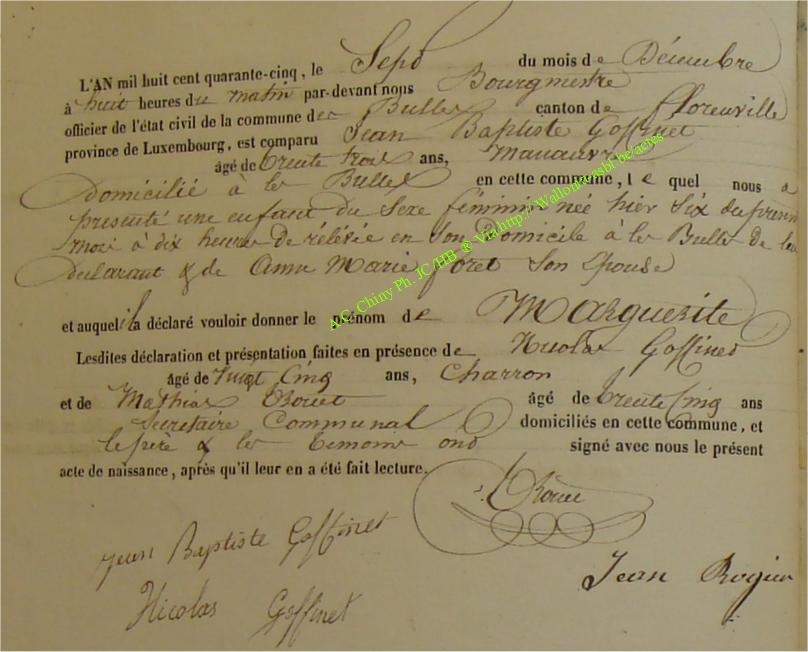 L'AN mil huit cent quarante-cinq, le Sept du mois de Décembre
à huit heures du matin par-devant nous Bourgmestre
officier de l'état civil de la commune de la Bulles canton de florenville
province de Luxembourg, est comparu Jean Baptiste Goffinet
âgé de trente trois ans, Manœuvre
Domicilié à la Bulles en cette commune, le quel nous a
présenté une enfant du Sexe féminin née hier six du présent
mois à dix heures de rélévée en Son Domicile à la Bulle de lui
Déclarant & de Anne Marie foret Son épouse
et auquel il a déclaré vouloir donner le prénom de Marguerite
Lesdites déclaration et présentation faites en présence de Nicolas Goffinet
âgé de vingt Cinq ans, Charron
et de Mathias âgé de trente Cinq ans
Secrétaire Communal domiciliés en cette commune, et
le père & les témoins ont signé avec nous le présent
acte de naissance, après qu'il leur en a été fait lecture.
Jean Baptiste Goffinet
Jean
Nicolas Goffinet
A.C. Chiny Ph. JC /HB @ Via http://Wallonia.asbl.be/actes